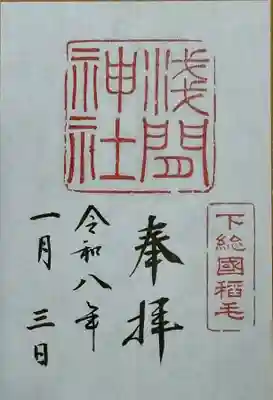 下総國稲毛
浅間
神社
奉拝
令和八年
一月三日